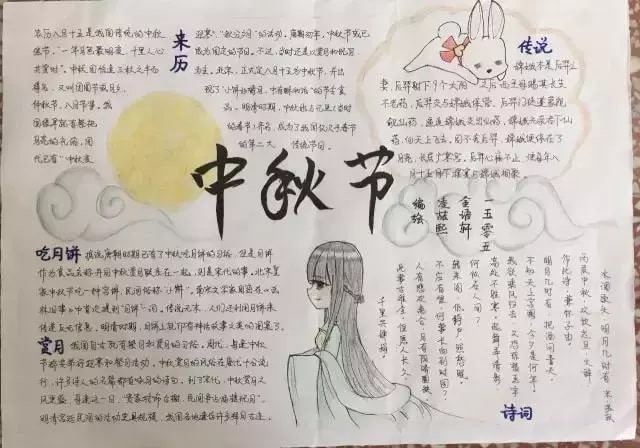 来历
农历八月十五是我国传统的中秋
佳节。"一年月色最明夜，千里人心
共赏时"。中秋因恰逢三秋之半而
得名，
仲秋节、八月节等。我
国很早就有祭拜
月亮的礼俗，周
代已有"中秋夜
迎寒"、"秋分夕月"的活动。唐朝初年，中秋节或已
成为固定的节日。不过，当时还是以赏月和祝月
为主。北宋，正式定八月十五为中秋节，并出
现了"小饼如嚼月，中有酥和饴"的节令食
品。明清时期，中秋也与元旦（当时
的春节）齐名，成为了我国仅次于春节
的第二大传统节日。
传说
嫦娥本是后羿之
妻，后羿射下9个太阳，之后西王母赐其长生
不老药，后羿交与嫦娥保管。后羿门徒逢蒙觊
觎仙药，逼迫嫦娥交出仙药，嫦娥无奈吞下仙
药，向天上飞去。因不舍后羿，嫦娥便停在了
月亮，长居广寒宫。后羿心痛不止，便每年八
月十五月下摆宴与嫦娥相聚。
中秋节
一五零五
金语轩
凌喆熙
编绘
吃月饼
据说唐朝时期已有了中秋吃月饼的习俗，但是月饼
作为食品名称并同中秋赏月联系在一起，则是宋代的事。北宋皇
家中秋节吃一种宫饼，民间俗称"小饼"。
林旧事》中首次提到"月饼"一词。传说元末，人们还利用月饼来
传递反元信息，明清时期，月饼上就印有神话故事之类的图案了。
赏月
我国自古就有祭月和赏月的习俗。周代，每逢中秋
节都要举行迎寒和祭月活动。中秋赏月的风俗在唐代十分流
行，许多诗人的名篇都有咏月的诗句。到了宋代，中秋赏月之
风更盛，每逢这一日，"贵家结饰台榭，民间争占酒楼玩月"。
明清宫廷民间的活动更具规模，我国各地遗存许多拜月古迹。
诗词
水调歌头 明月几时有 宋 苏轼
丙辰中秋，欢饮达旦，大醉，
作此诗，兼怀子由。
明月几时有，把酒问青天。
不知天上宫阙，今夕是何年。
我欲乘风归去，又恐琼楼玉宇，
高处不胜寒。起舞弄清影，
何似在人间？
转朱阁，低绮户，照无眠。
不应有恨，何事长向别时圆？
人有悲欢离合，月有阴晴圆缺，
此事古难全。但愿人长久，
千里共婵娟。